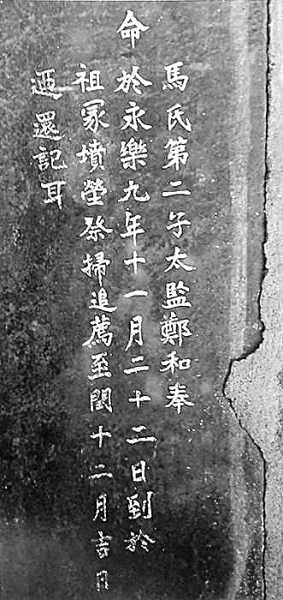 馬氏第二子太監鄭和奉
命於永樂九年十一月二十二日到於
祖冢墳塋祭掃追薦至閏十二月吉日
迺還記耳